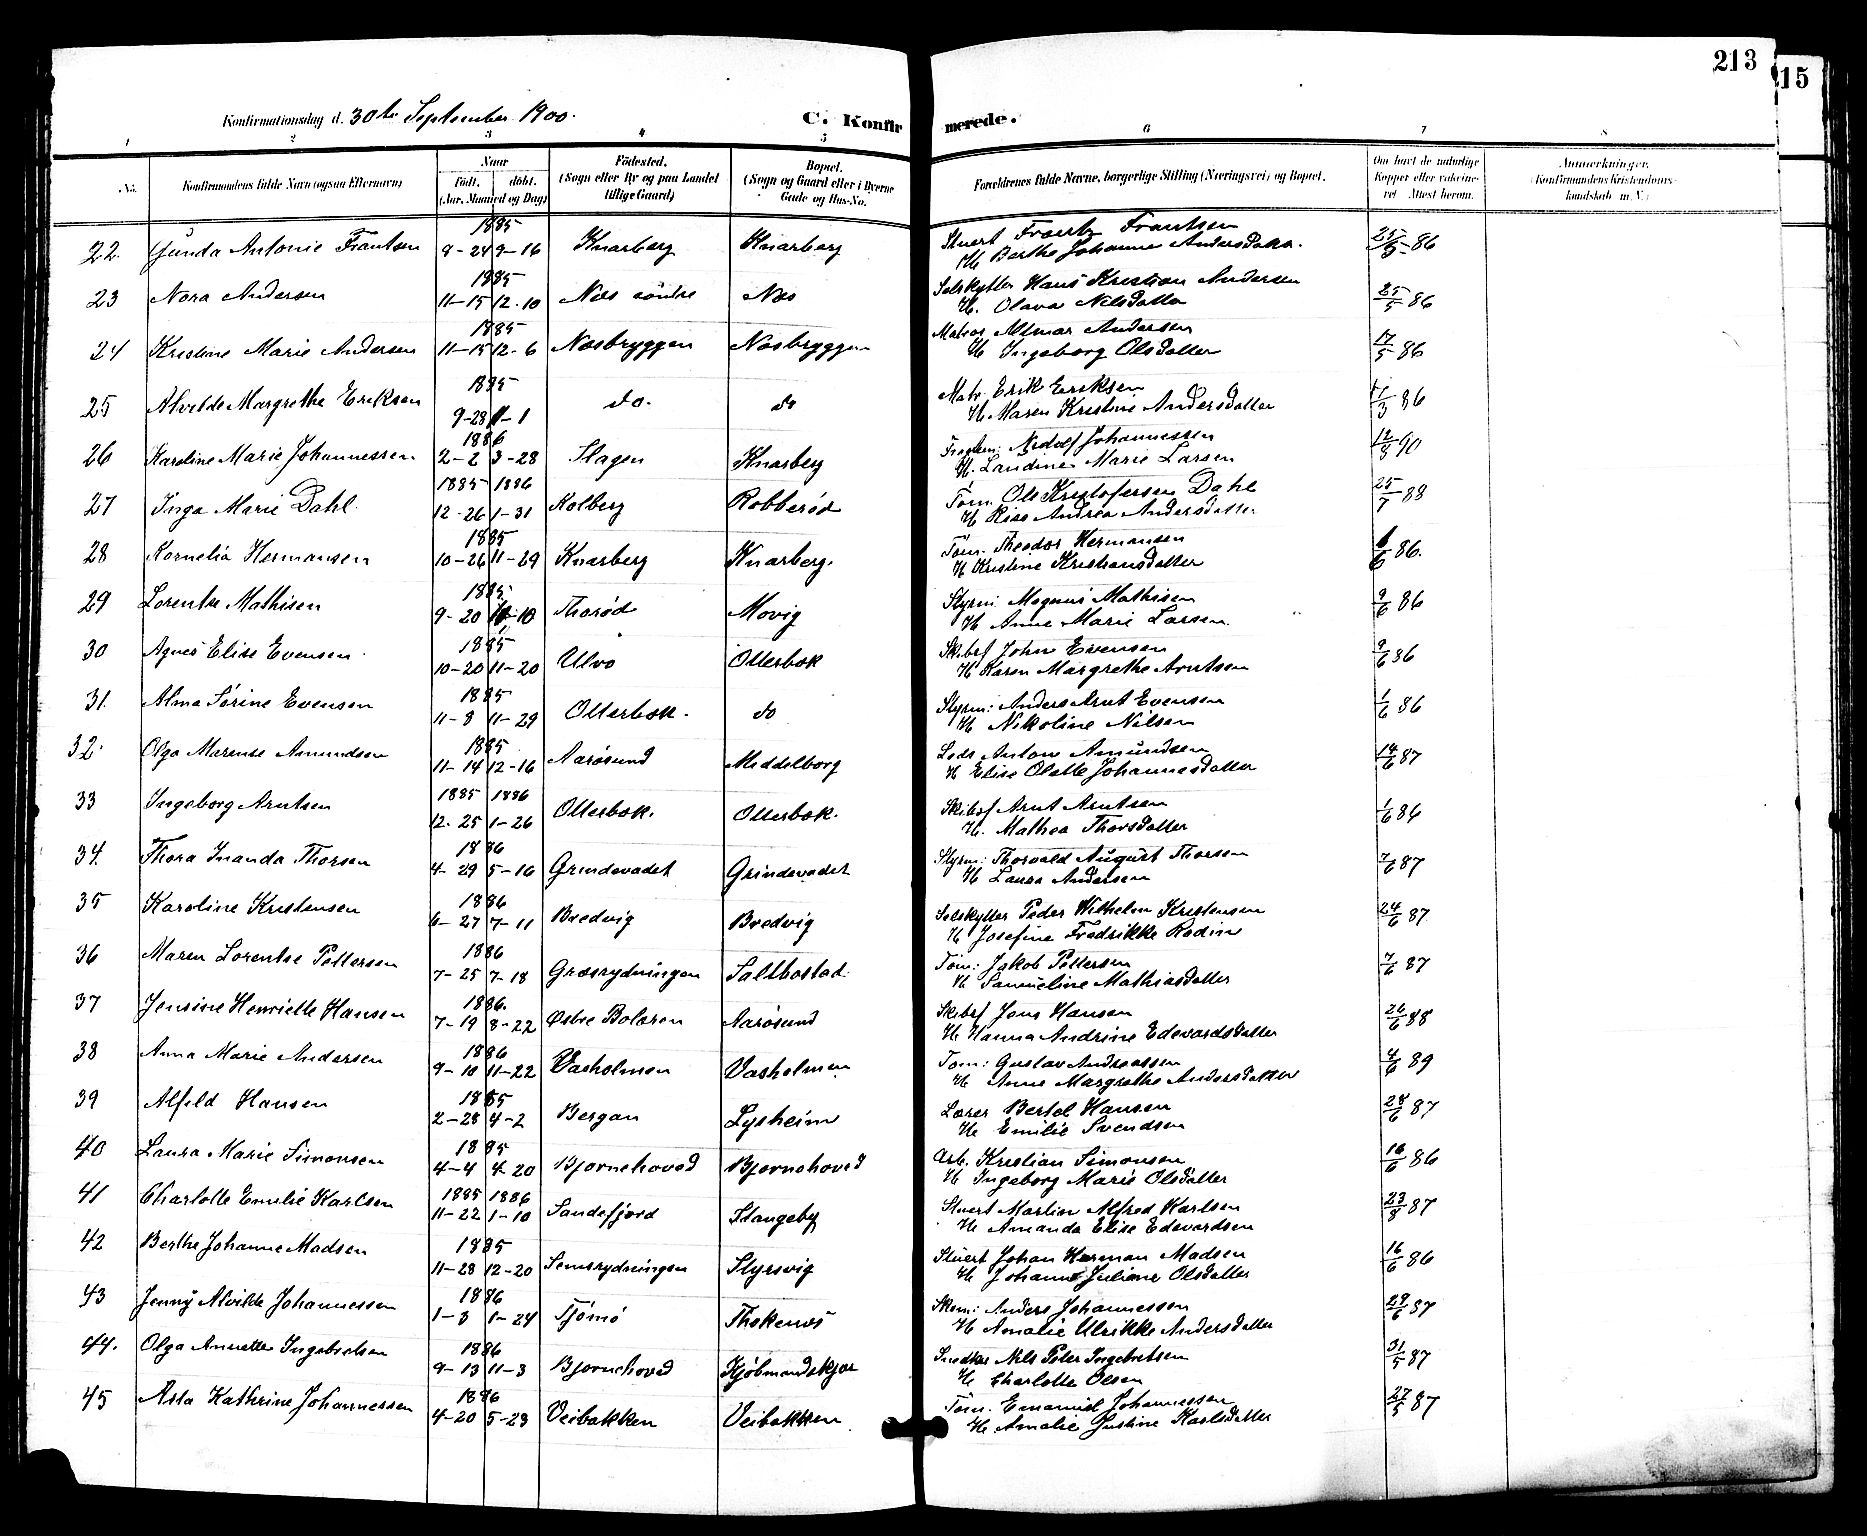 213
15
Konfirmationsdag d. 30te September 1900.
C. Konfirmerede.
1 2 3 4 5 6 7 8
No. Konfirmandens fulde Navn (ogsaa Efternavn)
Naar Födt. döbt. (Aar, Maaned og Dag)
Födested. (Sogn eller By og paa Landet tillige Gaard)
Bopæl. (Sogn og Gaard eller i Byerne Gade og Hus-No.
Forældrenes fulde Navne, borgerlige Stilling (Næringsvei) og Bopæl.
Om havt de naturlige Kopper eller vakcineret Attest herom.
Anmærkninger. (Konfirmandens Kristendomskundskab m.V.)
1885
22. Gunda Antonie Frantsen 8-24 9-16 Knarberg Knarberg Stuert Frantz Frantsen H Berthe Johanne Andersdatter. 25/5-86
1885
23 Nora Andersen 11-15 12-10 Næs søndre Næs Selskytter Hans Kristian Andersen H. Olava Nilsdatter 25/5 86
1885
24 Kristine Marie Andersen 11-15 12-6 Næsbryggen Næsbryggen Matros Almar Andersen H Ingeborg Olsdatter 17/5 86
1885
25 Alvilde Margrethe Eriksen 9-28 11-1 do. do Matr. Erik Eriksen H. Maren Kristine Andersdatter 1/3 86
1886
26 Karoline Marie Johannessen 2-2 3-28 Slagen Knarberg Johannessen H. Landine Marie Larsen 12/5 90
1885 1886
27 Inga Marie Dahl. 12-26 1-31 Kolberg Robberød Tøm. Ole Kristofersen Dahl H Risa Andrea Andersdatter 25/7 88
1885
28 Kornelia Hermansen 10-26 11-29 Knarberg Knarberg. Tøm. Theodor Hermansen H Kristine Kristiansdatter 6/6 86.
1885
29 Lorentse Mathisen 9-20 Thorød Movig Styrm Magnus Mathisen H Anne Marie Larsen. 9/6 86
1885
30 Agnes Elise Evensen 10-20 11-20 Ulvø Otterbæk Skibsf John Evensen H Karen Margrethe Arntsen 9/6 86
1885
31. Alma Sørine Evensen 11-8 11-29 Otterbæk. do Styrm: Anders Arnt Evensen H Nikoline Nilsen 1/6 86
1885
32. Olga Marense Amundsen 11-14 12-16 Aarøsund Middelborg Lods Anton Amundsen H Elise Olette Johannesdatter 14/6 87
1885 1886
33 Ingeborg Arntsen 12-25 1-26 Otterbæk. Otterbæk. Skibsf Arnt Arntsen H. Mathea Thorsdatter 1/6 86
1886
34. Thora Inanda Thorsen 4-29 5-16 Grindevadet Grindevadet Styrm: Thorvald August Thorsen H Laura Andersen 7/6 87
1886
35 Karoline Kristensen 6-27 7-11 Bredvig Bredvig Selskytter Peder Wilhelm Kristensen H Josefine Fredrikke Rodin 24/6 87
1886
36 Maren Lorentse Pettersen 7-25 7-18 Græsrydningen Saltbostad Tøm: Jakob Pettersen H Samueline Mathiasdatter 7/6 87
1886.
37 Jensine Henriette Hansen 7-19 8-22 Østre Bolæren Aarøsund Skibsf Jens Hansen H Hanna Andrine Edevardsdatter 26/6 88
1886
38 Anna Marie Andersen 9-10 11-22 Vasholmen Vasholmen Tøm: Gustav Andreassen H Anne Margrethe Andersdatter 4/6 89
1885
39 Alfild Hansen 2-28 4-2 Bergan Lysheim Lærer Bertel Hansen H Emilie Svendsen 28/6 87
1885
40 Laura Marie Simonsen 4-4 4-20 Bjørnehoved Bjørnehoved Arb. Kristian Simonsen H Ingeborg Marie Olsdatter 16/6 86
1885 1886
41 Charlotte Emilie Karlsen 11-22 1-10 Sandefjord Stangeby Stuert Martin Alfred Karlsen H Amanda Elise Edevardsen 23/8 87
1885
42 Berthe Johanne Madsen 11-28 12-20 Semsrydningen Styrsvig Stuert Johan Herman Madsen H Johanne Juliane Olsdatter 16/6 86
1886
43 Jenny Alvilde Johannessen 1-3 1-24 Tjømø Thokenæs Skom: Anders Johannessen H Amalie Ulrikke Andersdatter 28/6 87
1886
44. Olga Annette Ingebretsen 9-13 11-3 Bjørnehoved Kjøbmandskjær Snedker Nils Peter Ingebretsen H Charlotte Olsen 31/5 87
1886
45 Asta Kathrine Johannessen 4-20 5-23 Veibakken Veibakken Tøm. Emanuel Johannessen H. Amalie Justine Karlsdatter 27/5 87